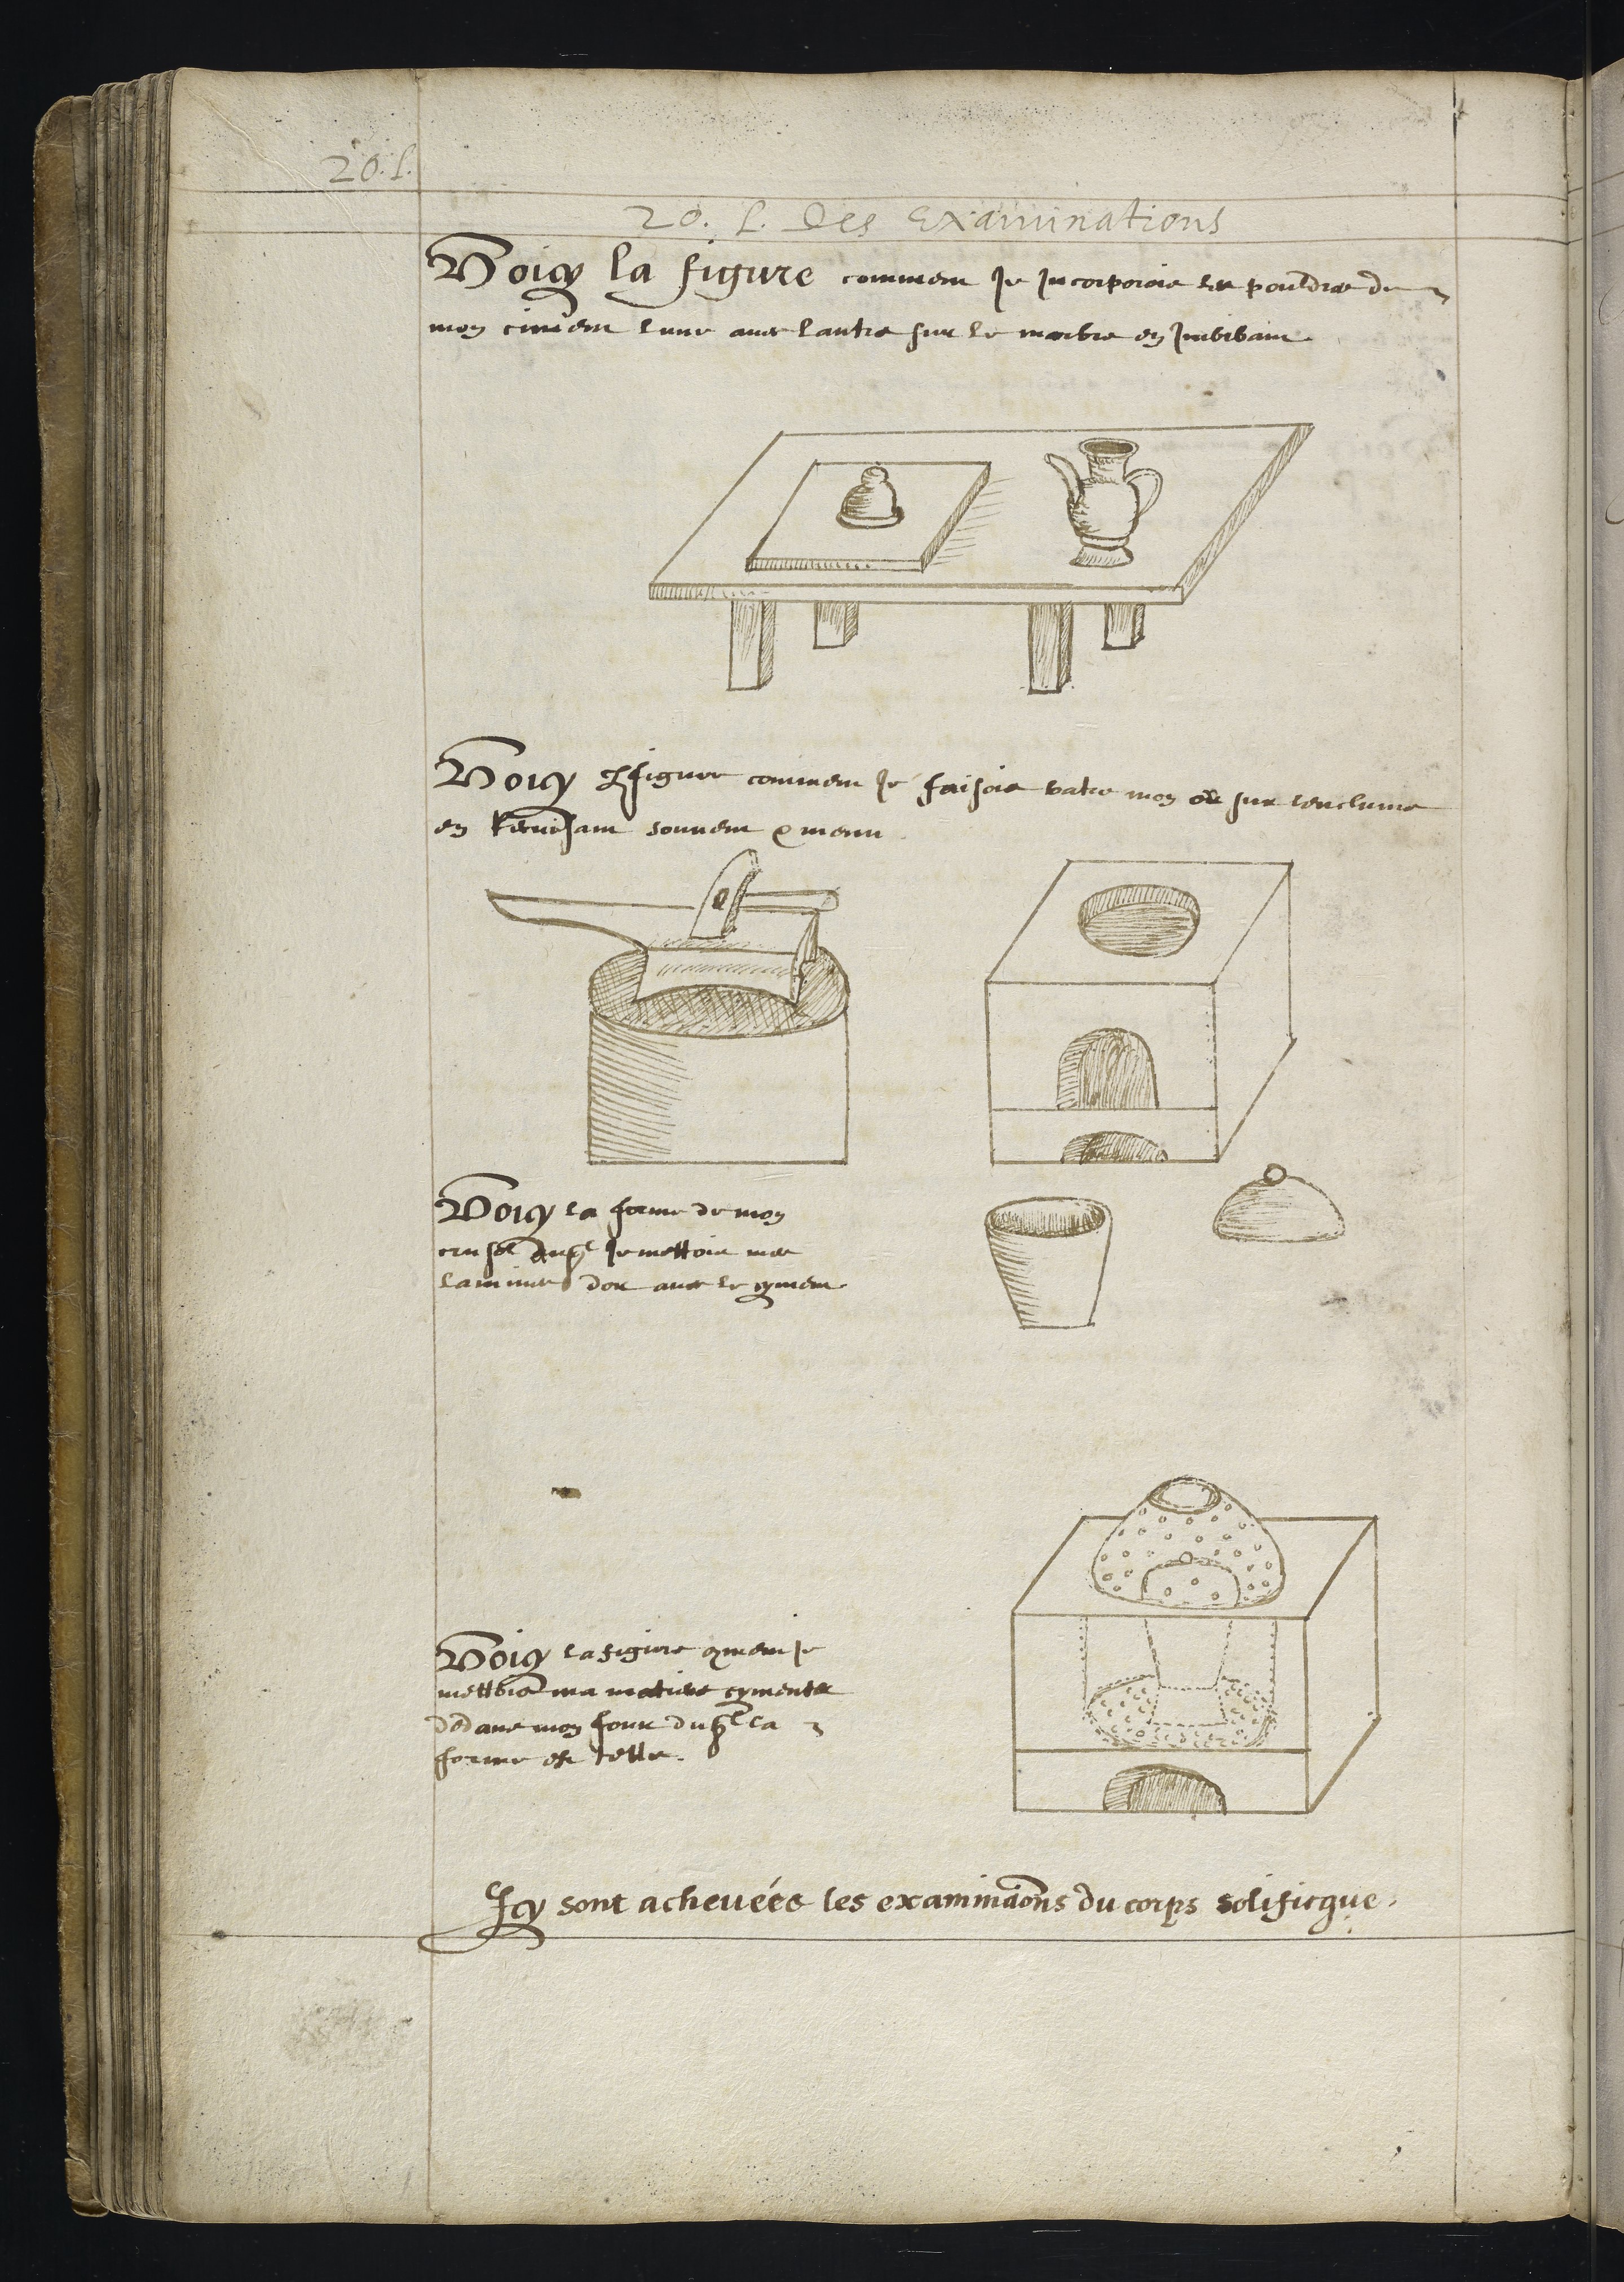 20. L.
20. L. Des Examinations
Voicy la figure comment Je Incorporois les pouldres de
mon ciment lune avec lautre sur le marbre en Imbibant.
Voicy figure comment Je faisois batre mon or sur lenclume
en Recuisant souvent & menu.
Voicy la forme de mon
cruset duql Je mettois mes
lamines dor avec le cyment
Voicy la figure coment Je
mettois ma matiere cymentee
dedans mon four duql la
forme est telle.
Icy sont achevées les examinaons du corps solificque.